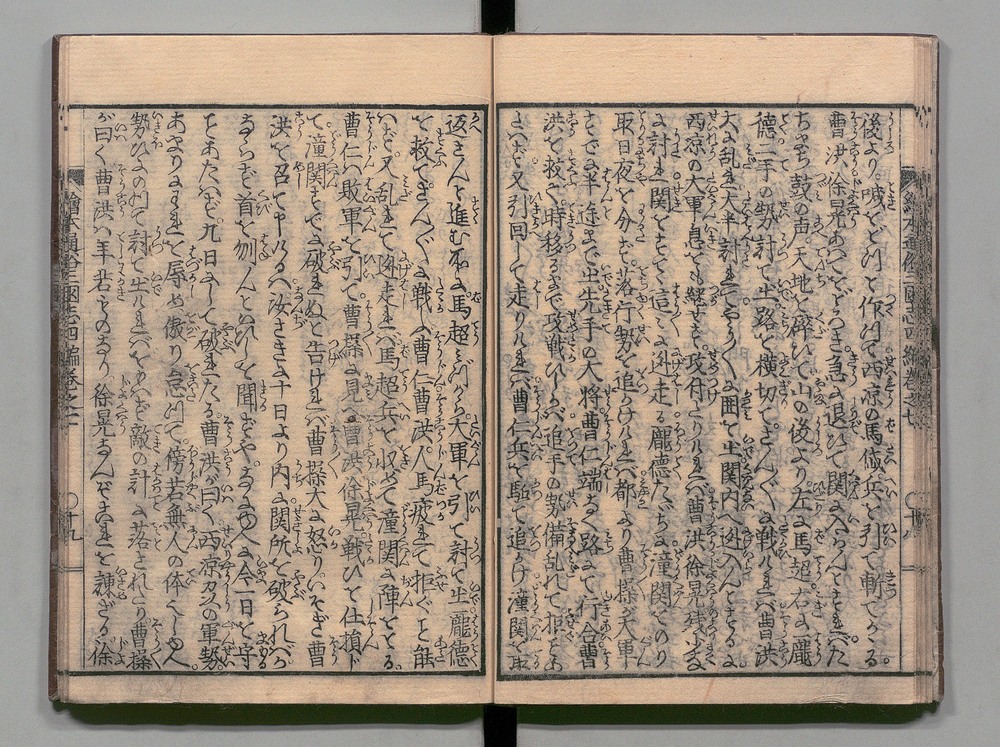 後より喊をどつと作けて西凉の馬岱兵を引て斬てかゝる
曹洪徐晃あはてふためき急に退ひて関に入らんとすれば
ちまち鼓の声天地を碎ひて山の後より左に馬超右に龐
徳二手の勢討て出路を横切てさん〲に戦ければ曹洪
大に乱れ大半討れてやう〳〵に囲を出関内へ迯入んとするに
西凉の大軍息をも継せず攻付たりければ曹洪徐晃残り
に討れ関をすてゝ這々迯走る龐徳たゞちに潼関にのり
取日夜を分たず落行勢を追かけければ都より曹操が大軍
すでに半途まで出先手の大将曹仁端なく路にて行合曹
洪を救て時移るまで攻戦ひしかば追手の勢備乱れて拒ことあ
たはず又引回して走りければ曹仁兵を駈て追かけ潼関を取
返さんと進む所に馬超みづから大軍を引て討て出龐徳
を救てさん〲に戦に曹仁曹洪人馬疲れて拒ぐこと能
はず又乱れて迯走れば馬超兵を収めて潼関に陣をとる
曹仁は敗軍を引て曹操に見へ曹洪徐晃戦ひを仕損じ
て潼関まで破られぬと告ければ曹操大に怒りいそぎ曹
洪を召て申けるは汝さきに十日より内に関所を破られば
ならず首を刎んといひしを聞ずやなんぞ今一日を守
ことあたはず九日にして破れたる曹洪が曰く西凉の軍勢
あまりにわれを辱め傲り怠けて傍若無人の体なしゆへ
勢ひにのりて討て出ければをもはず敵の計に落されたり曹操
が曰く曹洪は年若きものなり徐晃なんぞこれを諫ざる徐
繪本通俗三國志四編巻之七
十九